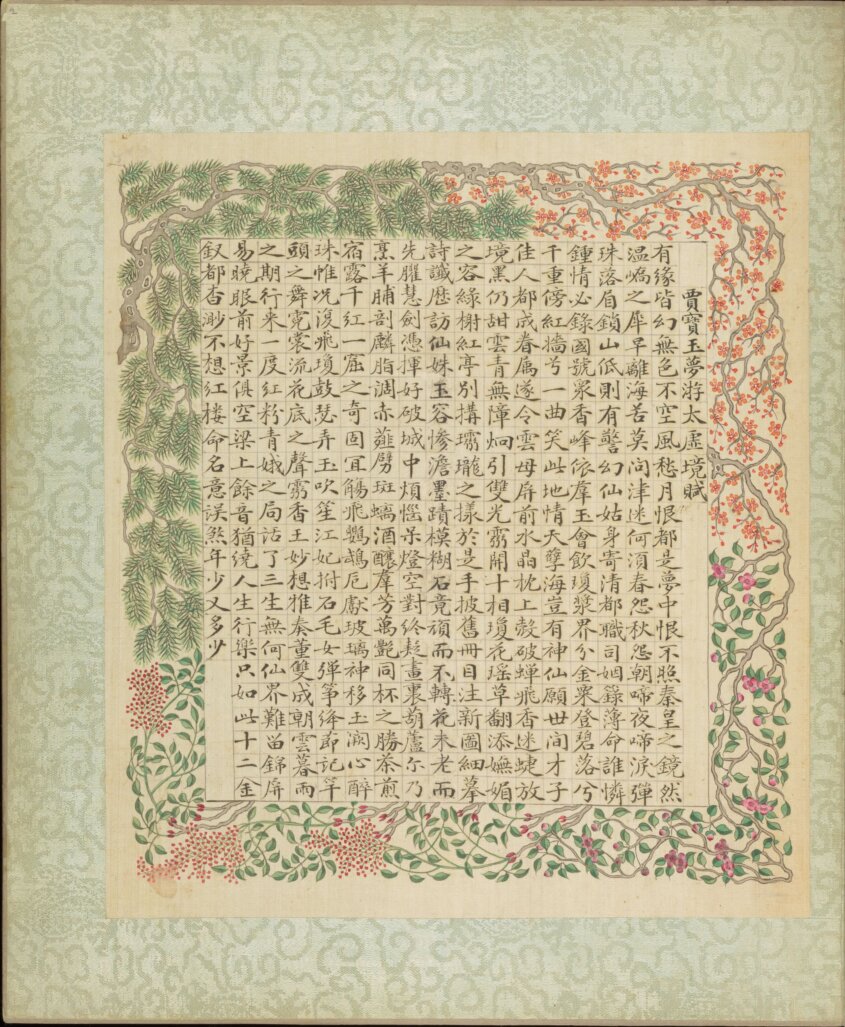 賈寶玉夢游太虛境賦
有緣皆幻無色不空風愁月恨都是夢中恨不照秦皇之鏡然
温嶠之犀早離海苦莫問津迷何須春怨秋怨朝啼夜啼淚彈
珠落眉鎖山低則有警幻仙姑身寄清都職司姻籙薄命誰憐
鍾情必錄國號衆香峰依羣玉會飲瓊漿界分金粟登碧落兮
千重傍紅墻兮一曲笑此地情天孽海豈有神仙願世間才子
佳人都成眷屬遂令雲母屏前水晶枕上殼破蟬飛香迷蜨放
境黑仍甜雲青無憚炯引雙光霱開十相瓊花瑶草翻添嫵媚
之容綠榭紅亭別搆瓏之樣於是手披舊冊目注新圖細摹
詩讖歷訪仙姝玉容慘澹墨蹟模糊石竟頑而不轉花未老而
先臞慧劍憑揮好破城中煩惱呆燈空對終疑畫裏葫蘆尔乃
烹羊脯剖麟脂調赤薤劈斑螭酒釀羣芳萬艷同杯之勝茶煎
宿露千紅一窟之奇固宜觴飛鸚鵡卮獻玻璃神移玉闕心醉
珠帷况復飛瓊鼓瑟弄玉吹笙江妃拊石毛女彈箏絳節記竿
頭之舞霓裳流花底之聲霱香王妙想雅奏董雙成朝雲暮雨
之期行来一度紅粉青娥之局話了三生無何仙界難留錦屏
易曉眼前好景俱空梁上餘音猶繞人生行樂只如此十二金
釵都杳渺不想紅樓命名意誤煞年少又多少